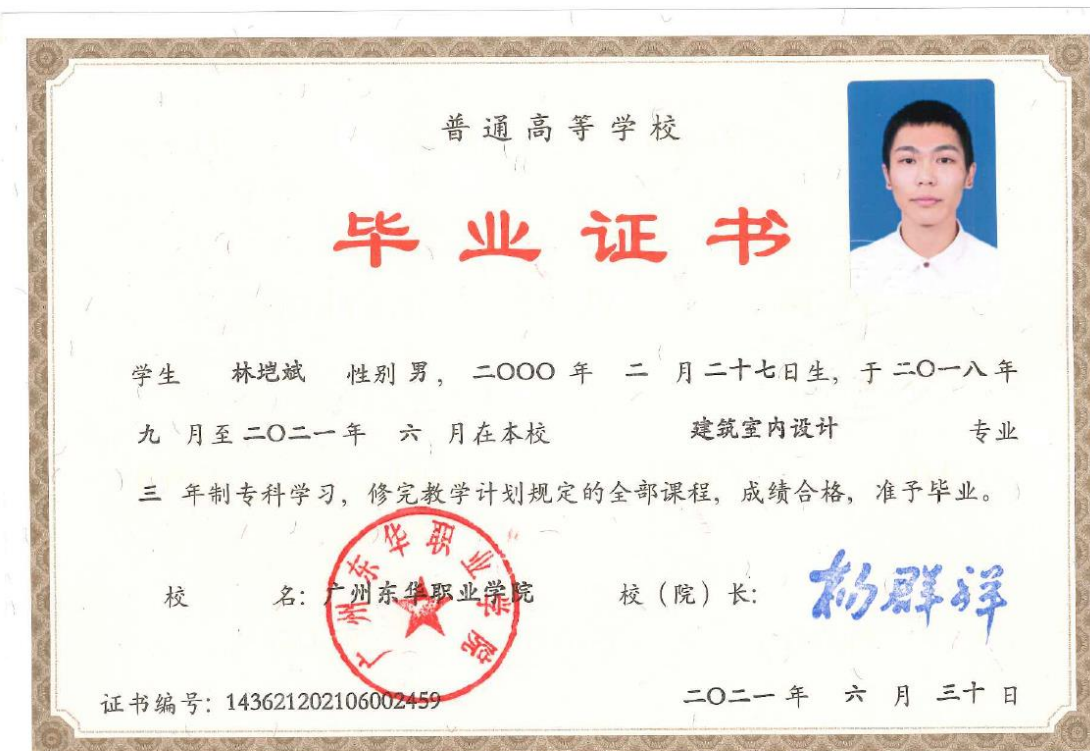 普通高等学校
毕业证书
学生 林垲斌 性别 男，二〇〇〇 年 二 月 二十七日生，于 二〇一八 年
九 月至 二〇二一 年 六 月在本校 建筑室内设计 专业
三 年制专科学习，修完教学计划规定的全部课程，成绩合格，准予毕业。
校 名：广州东华职业学院 校（院）长：杨群祥
广州东华职业学院
证书编号：143621202106002459 二〇二一 年 六 月 三十 日